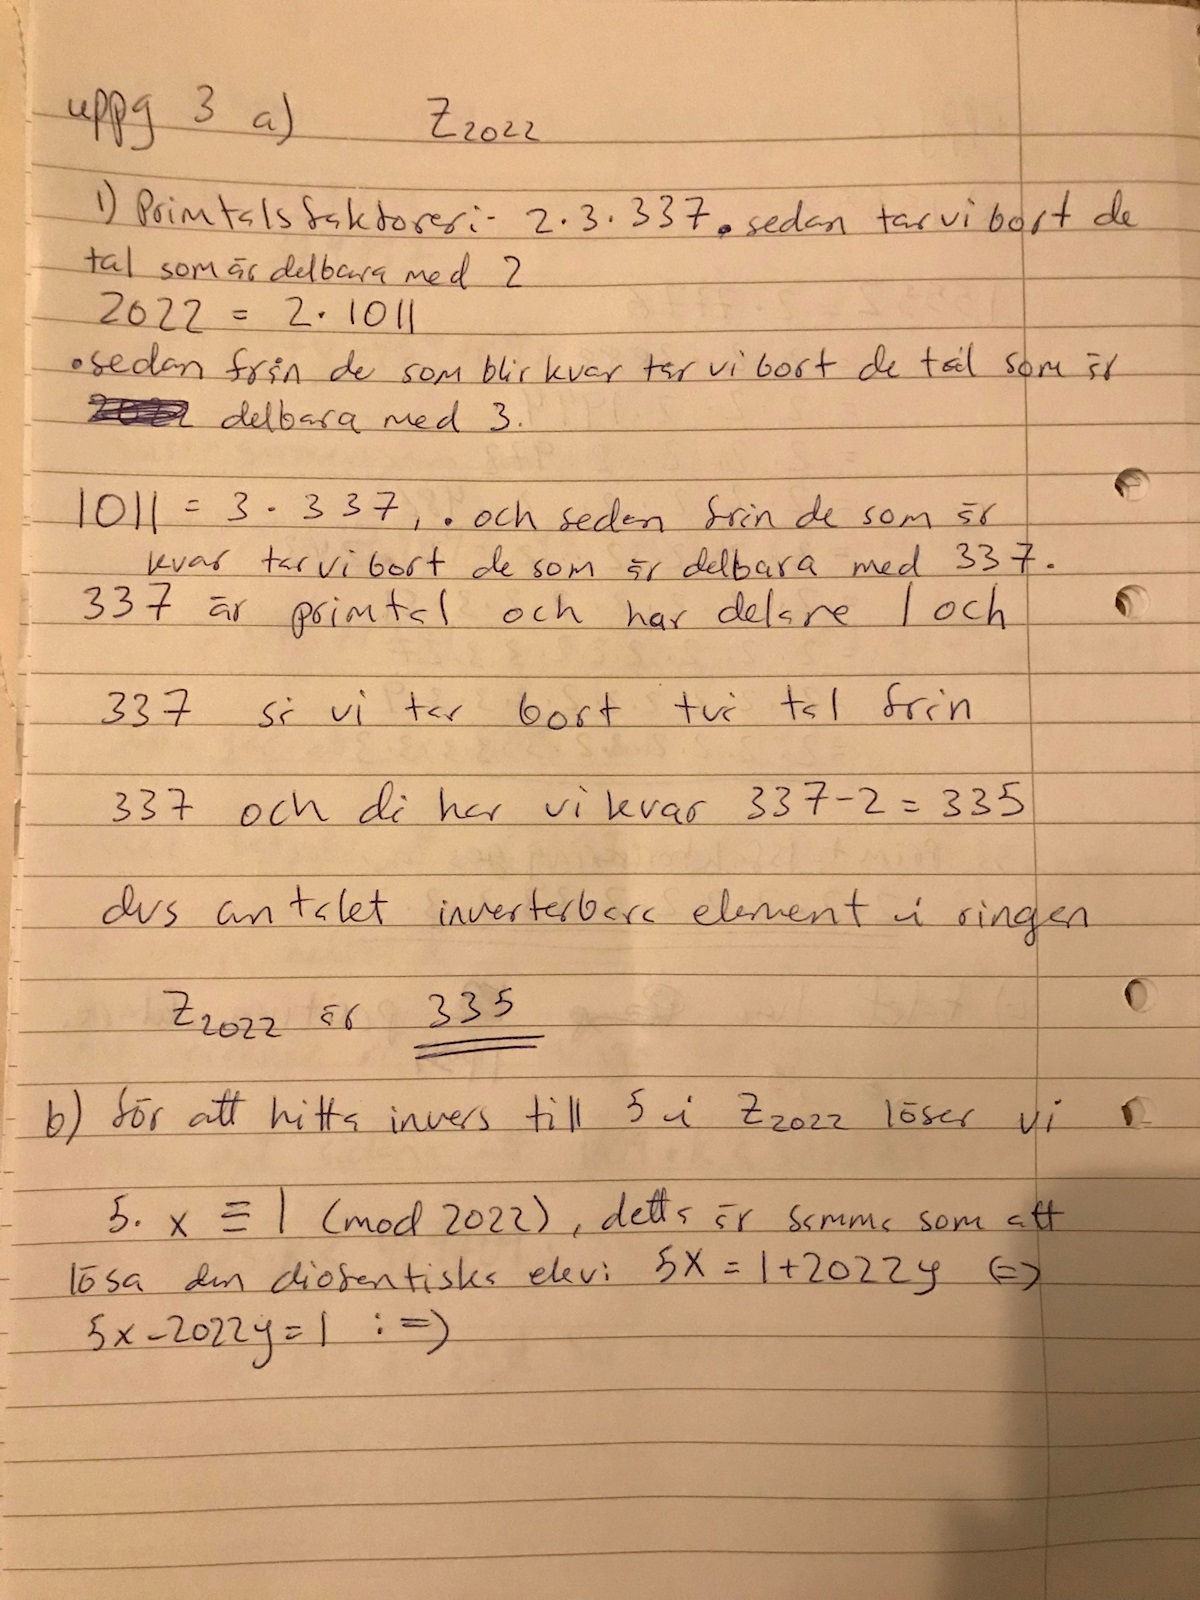 uppg 3 a) Z2022
1) Primtalsfaktoreri- 2·3·337 . sedan tar vi bort de
tal som är delbara med 2
2022 = 2·1011
• sedan från de som blir kvar tar vi bort de tal som är
delbara med 3.
1011 = 3·337, . och sedan från de som är
kvar tar vi bort de som är delbara med 337.
337 är primtal och har delare 1 och
337 så vi tar bort två tal från
337 och då har vi kvar 337-2 = 335
dvs antalet inverterbara element i ringen
Z2022 är 335
b) för att hitta invers till 5 i Z2022 löser vi
5·x ≡ 1 (mod 2022), detta är samma som att
lösa den diofentiska ekv: 5x = 1+2022y <=>
5x-2022y=1 :=)